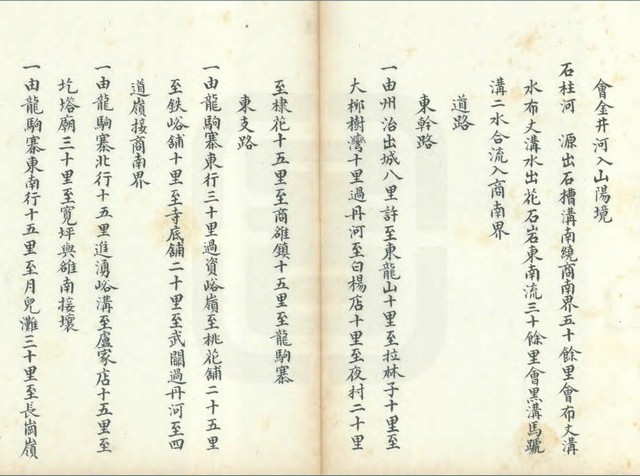 會金井河入山陽境
石柱河　源出石槽溝南繞商南界五十餘里會布丈溝
水布丈溝水出花石岩東南流三十餘里會黑溝馬蹏
溝二水合流入商南界
道路
東幹路
一由州治出城八里許至東龍山十里至拉林子十里至
大柳樹灣十里過丹河至白楊店十里至夜村二十里
至棣花十五里至商雒鎮十五里至龍駒寨
東支路
一由龍駒寨東行三十里過資峪嶺至桃花舖二十五里
至鉄峪舖十里至寺底舖二十里至武關過丹河至四
道嶺接商南界
一由龍駒寨北行十五里進湧峪溝至盧家店十五里至
圪塔廟三十里至寬坪與雒南接壤
一由龍駒寨東南行十五里至月兒灘三十里至長崗嶺